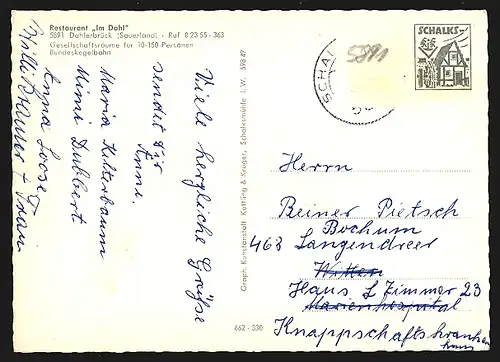 Restaurant „Im Dahl"
5891 Dahlerbrück (Sauerland) · Ruf 0 23 55 - 363
Gesellschaftsräume für 10-150 Personen
Bundeskegelbahn
Viele herzliche Grüße
sendet Dir
Anni.
Maria Kilterbaum
Mimi Dubbert
Anna Loose
Willi + Frau
Graph. Kunstanstalt Kuttling & Krüger, Schalksmühle i. W. 598 49
662 - 330
SCHAL
5891
SCHALKS-
Herrn
Reiner Pietsch
Bochum
463 Langendreer
Witten
Haus L Zimmer 23
Marienhospital
Knappschaftskranken
haus